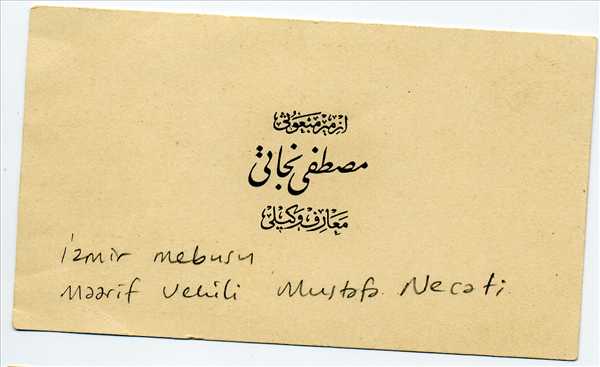 ازمير مبعوثى
مصطفى نجاتى
معارف وكيلى
izmir mebusu
Maarif Vekili Mustafa Necati